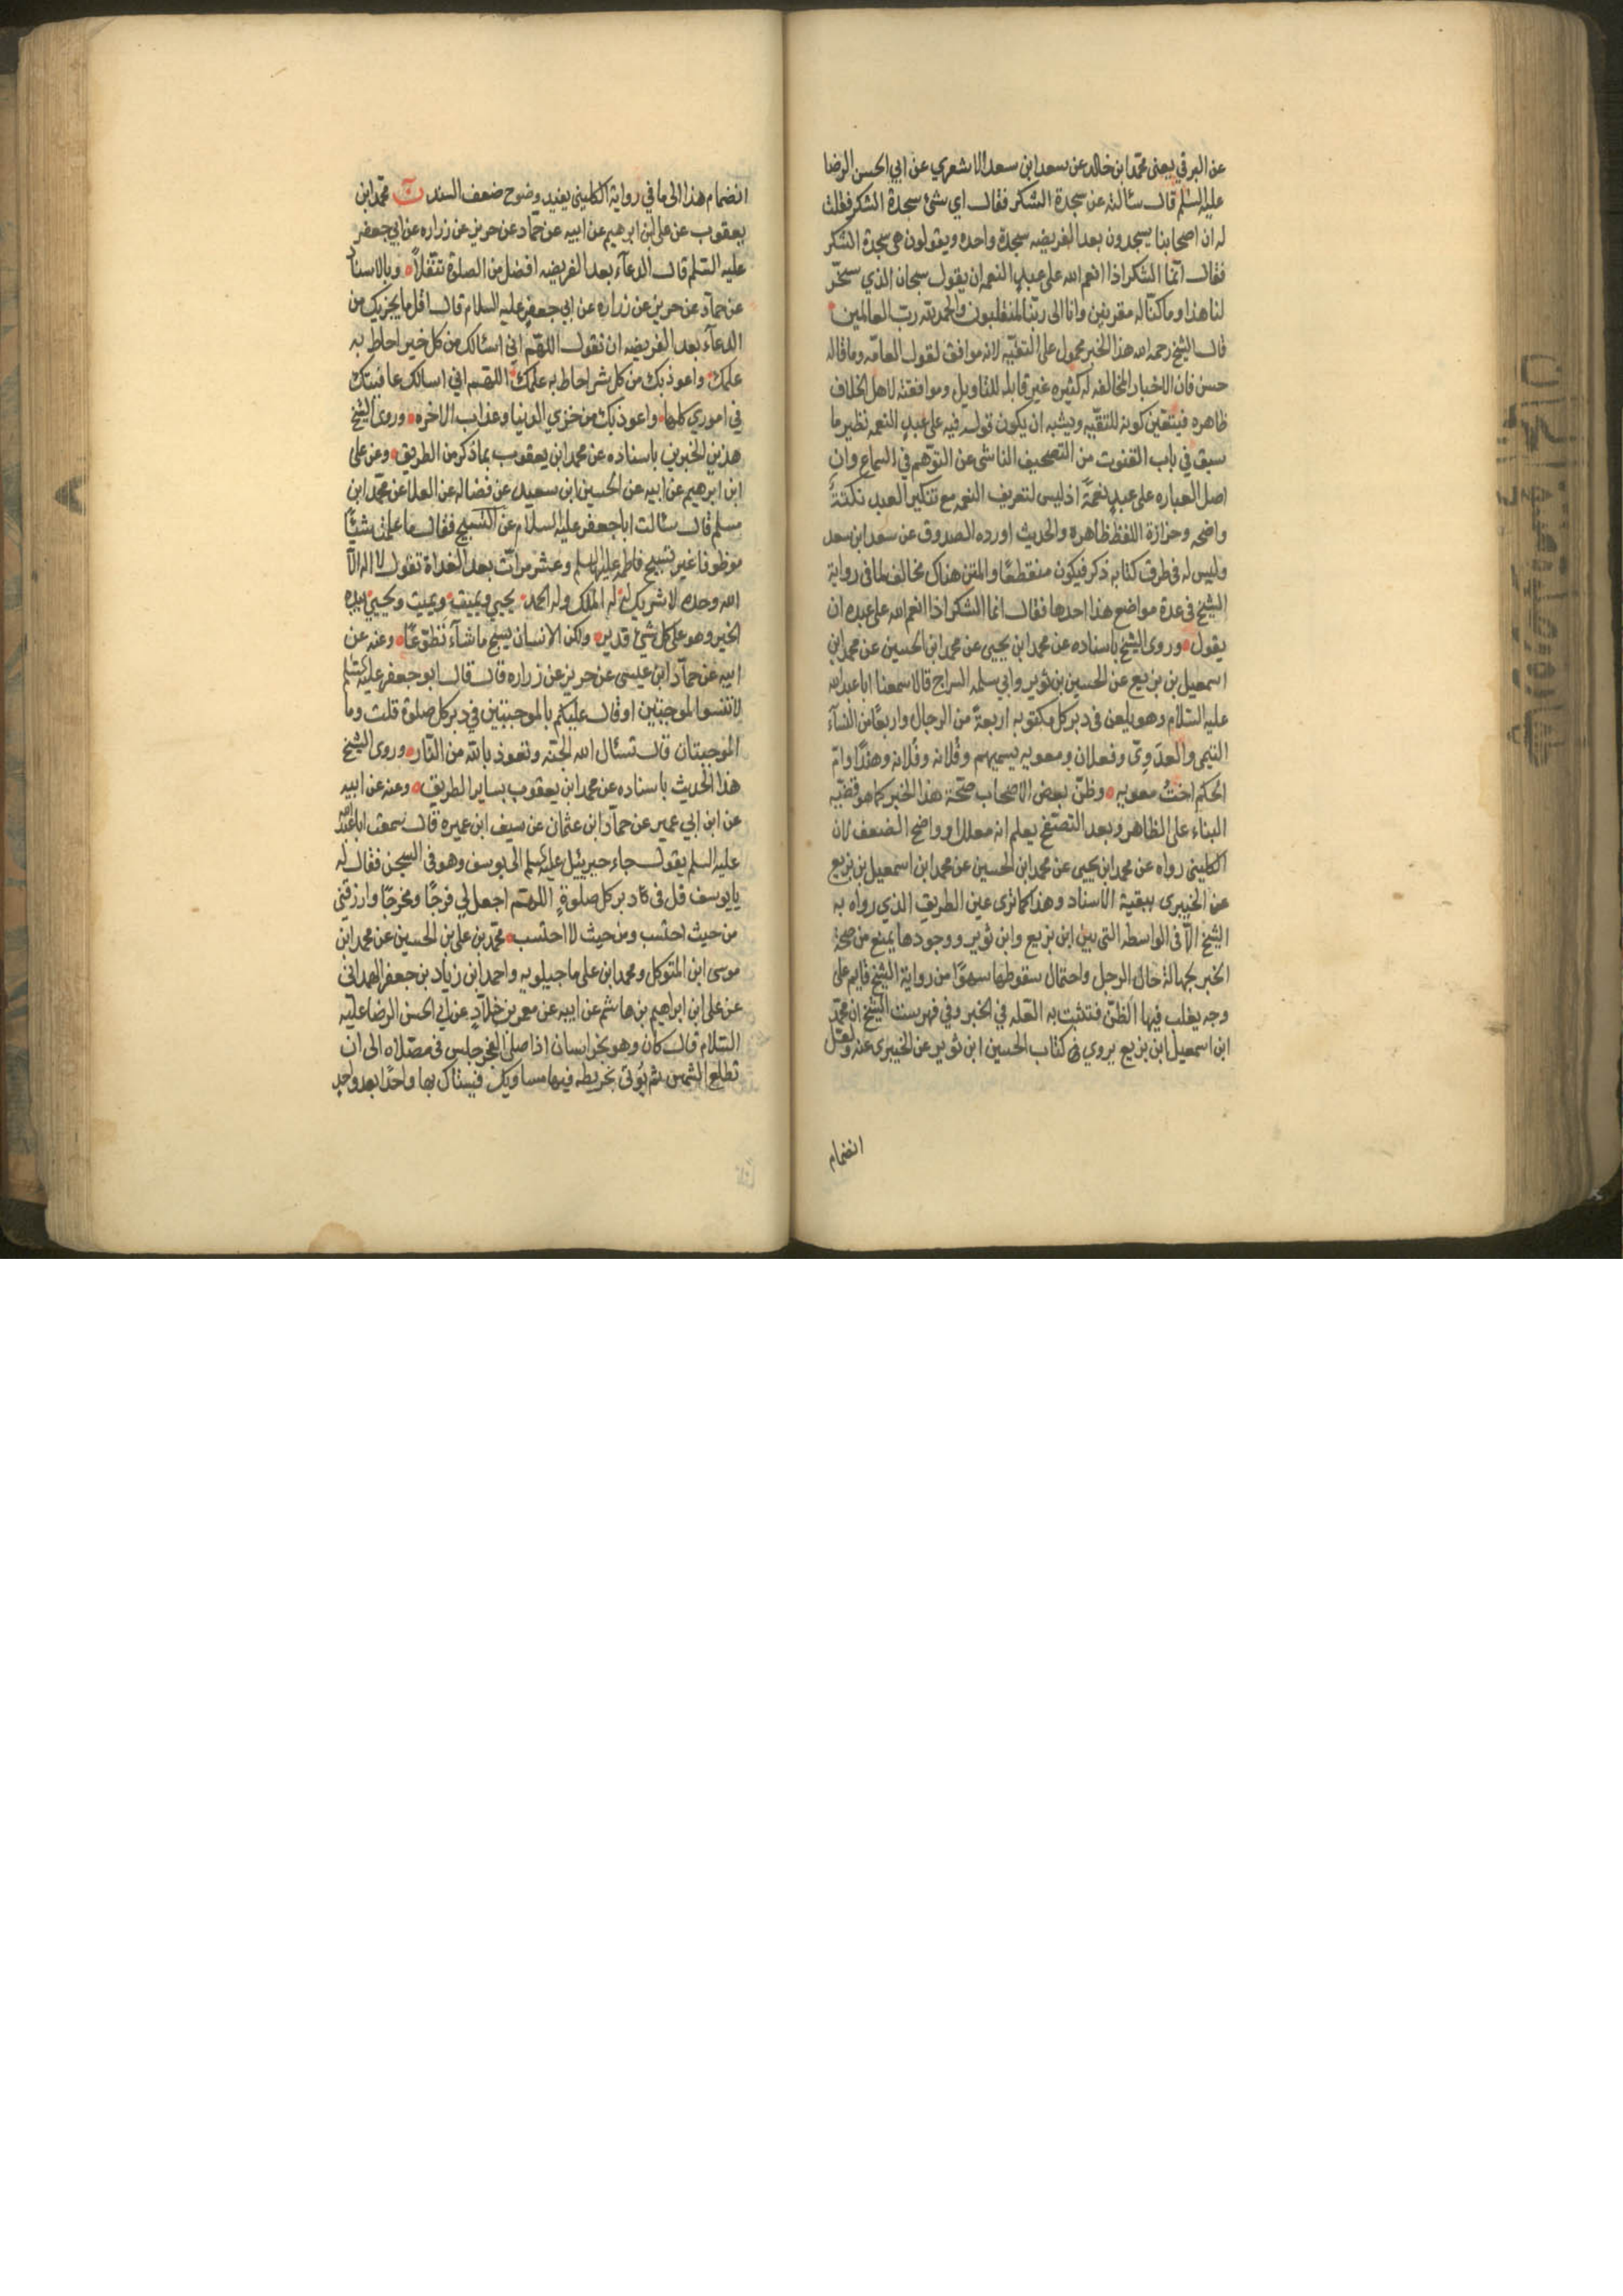 عن البرقي يعنى محمد ابن خالد عن سعد ابن سعد الاشعري عن ابي الحسن الرضا
عليه السلم قال سئالته عن سجدة الشكر فقال اي شئ سجدة الشكر فقلت
له ان اصحابنا يسجدون بعد الفريضه سجدة واحده ويقولون هى سجدة الشكر
فقال انما الشكر اذا انعم الله على عبد النعمه ان يقول سبحان الذي سخر
لنا هذا وما كنا له مقرنين وانا الى ربنا لمنقلبون والحمد لله رب العالمين
قال الشيخ رحمه الله هذا الخبر محمول على التقيه لانه موافق لقول العامه وما قاله
حسن فان الاخبار المخالفه له كثيره غير قابله للتاويل وموافقته لاهل الخلاف
ظاهره فيتعين كونه للتقيه ويشبه ان يكون قوله فيه على عبد النعمه نظير ما
سبق في باب القنوت من التصحيف الناشى عن التوهم في السماع وان
اصل العباره على عبد نعمة اذ ليس لتعريف النعمه مع تنكير العبد نكتة
واضحه وحزازة اللفظ ظاهره والحديث اورده الصدوق عن سعد ابن سعد
وليس له في طرق كتابه ذكر فيكون منقطعا والمتن هناك مخالف لما فى رواية
الشيخ في عدة مواضع هذا احدها فقال انما الشكر اذا انعم الله على عبده ان
يقول وروى الشيخ باسناده عن محمد ابن يحيى عن محمد ابن الحسين عن محمد ابن
اسمعيل بن بزيع عن الحسين بن ثوير وابي سلمه السراج قالا سمعنا ابا عبد الله
عليه السلام وهو يلعن في دبر كل مكتوبه اربعة من الرجال واربعا من النسآء
التيمى والعدوى وفعلان ومعويه يسميهم وفلانه وفلانه وهندا وام
الحكم اخت معويه وظن بعض الاصحاب صحة هذا الخبر كما هو قضيه
البناء على الظاهر وبعد التصفح يعلم انه معلل او واضح الضعف لان
الكلينى رواه عن محمد ابن يحيى عن محمد ابن الحسين عن محمد ابن اسمعيل بن بزيع
عن الخيبرى ببقية الاسناد وهذا كما ترى عين الطريق الذي رواه به
الشيخ الا فى الواسطه التى بين ابن بزيع وابن ثوير ووجودها يمنع من صحة
الخبر بجهالة حال الرجل واحتمال سقوطها سهوا من رواية الشيخ قايم على
وجه يغلب فيها الظن فتثبت به العله في الخبر وفي فهرست الشيخ ان محمد
ابن اسمعيل ابن بزيع يروي كتاب الحسين ابن ثوير عن الخيبرى عنه ولعل
انضمام
انضمام هذا الى ما في رواية الكلينى يفيد وضوح ضعف السند ن محمد ابن
يعقوب عن على ابن ابرهيم عن ابيه عن حماد عن حريز عن زراره عن ابي جعفر
عليه السلم قال الدعآء بعد الفريضه افضل من الصلوة تنفلا وبالاسناد
عن حماد عن حريز عن زراره عن ابي جعفر عليه السلام قال اقل ما يجزيك من
الدعآء بعد الفريضه ان تقول اللهم اني اسئالك من كل خير احاط به
علمك واعوذ بك من كل شر احاط به علمك اللهم اني اسالك عافيتك
في اموري كلها واعوذ بك من خزي الدنيا وعذاب الاخره وروى الشيخ
هذين الخبرين باسناده عن محمد ابن يعقوب بما ذكر من الطريق وعن على
ابن ابرهيم عن ابيه عن الحسين ابن سعيد عن فضاله عن العلا عن محمد ابن
مسلم قال سئالت ابا جعفر عليه السلام عن التسبيح فقال ما علمت شيئا
موظوفا غير تسبيح فاطمه عليها السلم وعشر مرات بعد الغداة تقول لا اله الا
الله وحده لا شريك له له الملك وله الحمد يحيي ويميت ويميت ويحيي بيده
الخير وهو على كل شئ قدير ولكن الانسان يسبح ما شآء تطوعا وعنه عن
ابيه عن حماد ابن عيسى عن حريز عن زراره قال قال ابو جعفر عليه السلم
لا تنسوا الموجبتين او قال عليكم بالموجبتين في دبر كل صلوة قلت وما
الموجبتان قال تسئال الله الجنه وتعوذ بالله من النار وروى الشيخ
هذا الحديث باسناده عن محمد ابن يعقوب بساير الطريق وعنه عن ابيه
عن ابن ابي عمير عن حماد ابن عثمان عن سيف ابن عميره قال سمعت ابا عبد الله
عليه السلم يقول جاء جبرييئل عليه السلم الى يوسف وهو فى السجن فقال له
يا يوسف قل في دبر كل صلوة اللهم اجعل لي فرجا ومخرجا وارزقنى
من حيث احتسب ومن حيث لا احتسب محمد بن على بن الحسين عن محمد ابن
موسى ابن المتوكل ومحمد ابن على ماجيلويه واحمد ابن زياد بن جعفر الهمدانى
عن على ابن ابراهيم بن هاشم عن ابيه عن معمر بن خلاد عن ابي الحسن الرضا عليه
السلام قال كان وهو بخراسان اذا صلى الفجر جلس فى مصلاه الى ان
تطلع الشمس ثم يؤتى بخريطه فيها مساويك فيستاك بها واحدا بعد واحد